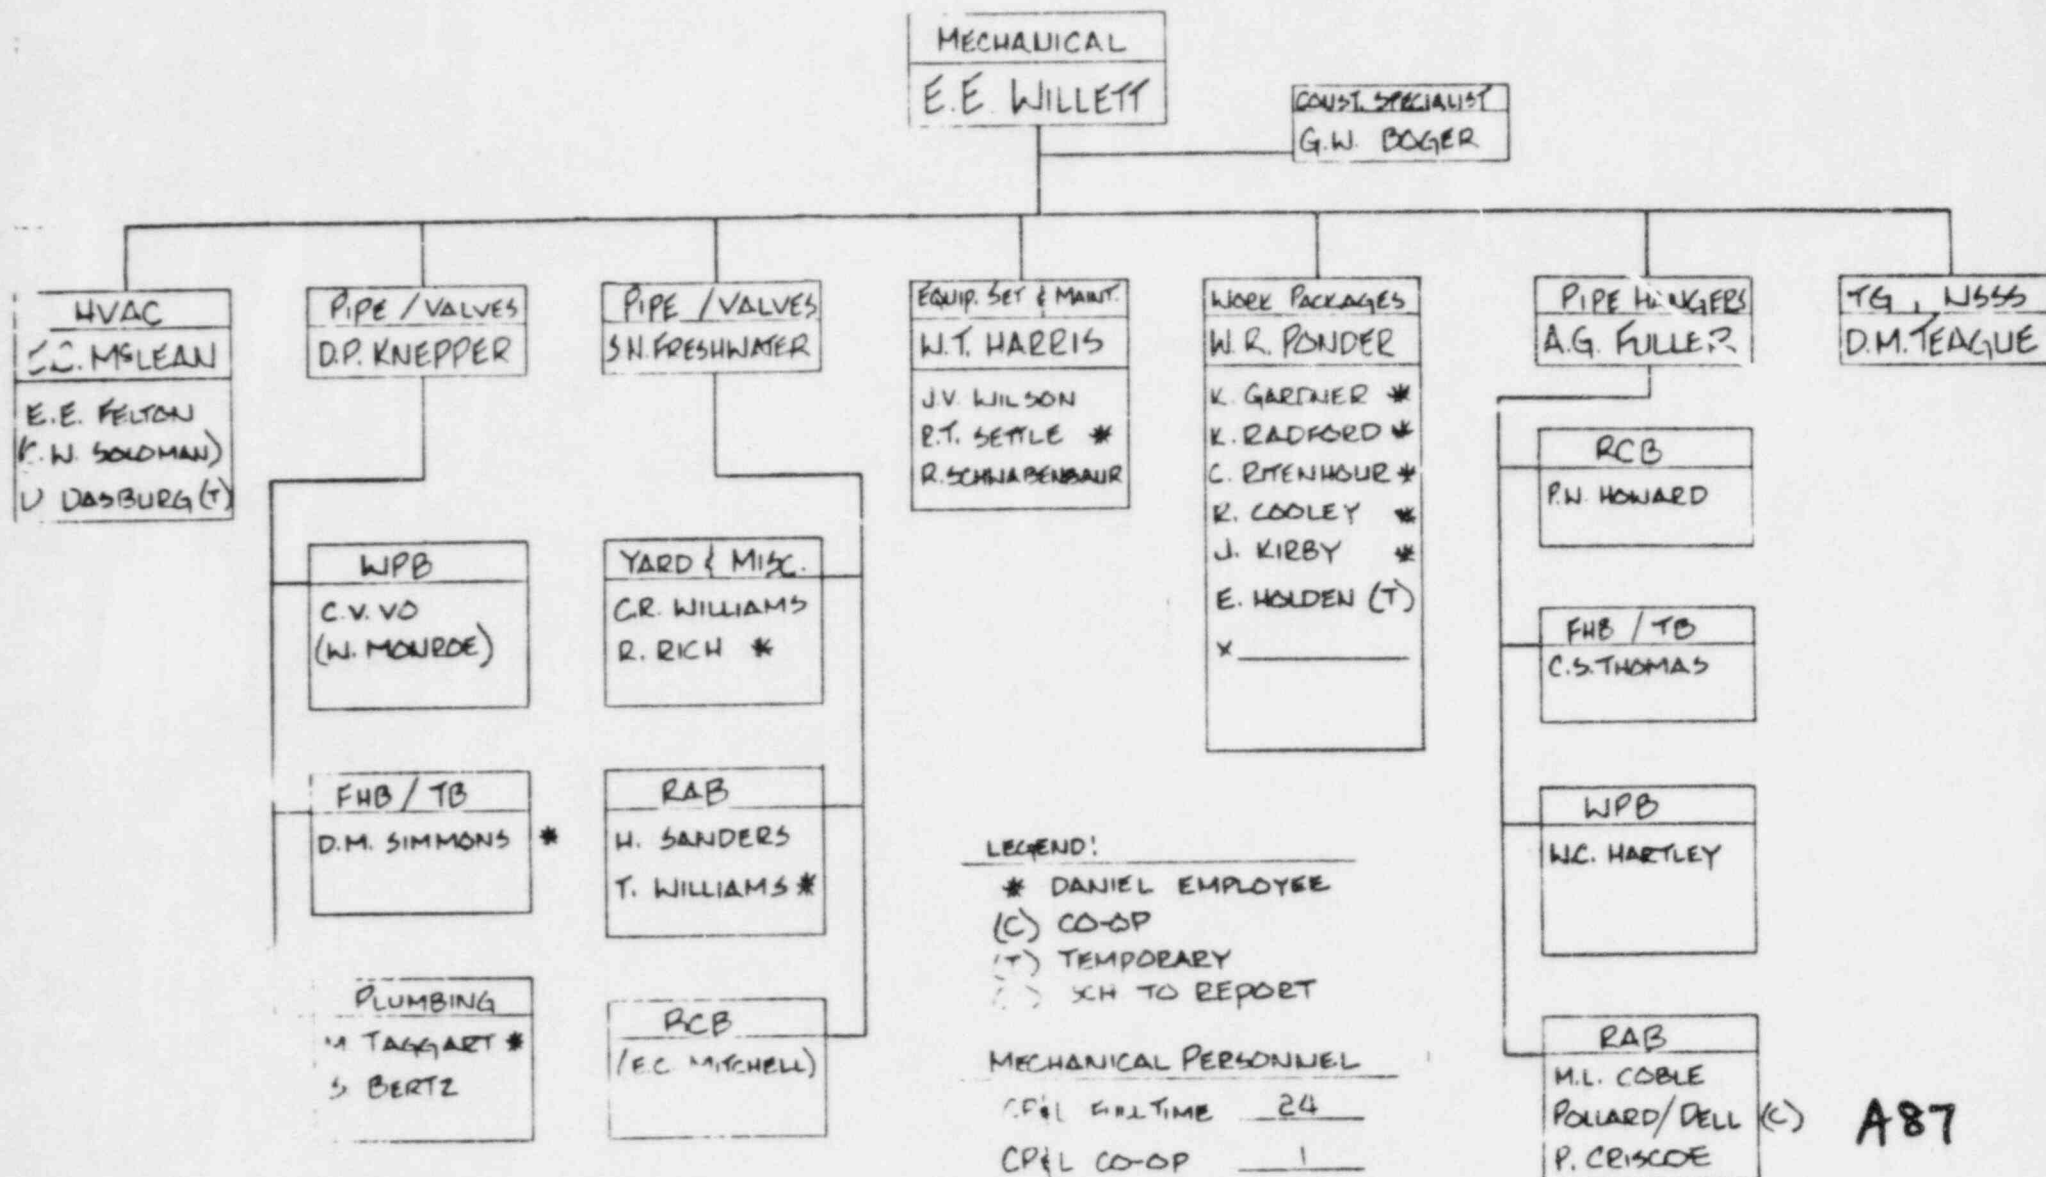 MECHANICAL
E.E. WILLETT
CONST. SPECIALIST
G.W. BOGER
HVAC
McLEAN
E.E. FELTON
W. SOLOMAN)
DASBURG (T)
PIPE / VALVES
D.P. KNEPPER
WPB
C.V. VO
(W. MONROE)
FHB / TB
D.M. SIMMONS *
PLUMBING
M TAGGART *
S BERTZ
PIPE / VALVES
S.N. FRESHWATER
YARD & MISC.
C.R. WILLIAMS
R. RICH *
RAB
H. SANDERS
T. WILLIAMS *
RCB
(E.C. MITCHELL)
EQUIP. SET & MAINT.
W.T. HARRIS
J.V. WILSON
R.T. SETTLE *
R. SCHWABENBAUR
WORK PACKAGES
W.R. PONDER
K. GARDNER *
K. RADFORD *
C. RITENHOUR *
R. COOLEY *
J. KIRBY *
E. HOLDEN (T)
x
PIPE HANGERS
A.G. FULLER
RCB
P.W. HOWARD
FHB / TB
C.S. THOMAS
WPB
W.C. HARTLEY
RAB
M.L. COBLE
POLLARD/DELL (C)
P. CRISCOE
TG, NSSS
D.M. TEAGUE
LEGEND:
* DANIEL EMPLOYEE
(C) CO-OP
(T) TEMPORARY
( ) SCH TO REPORT
MECHANICAL PERSONNEL
CP&L FULL TIME 24
CP&L CO-OP 1
A87